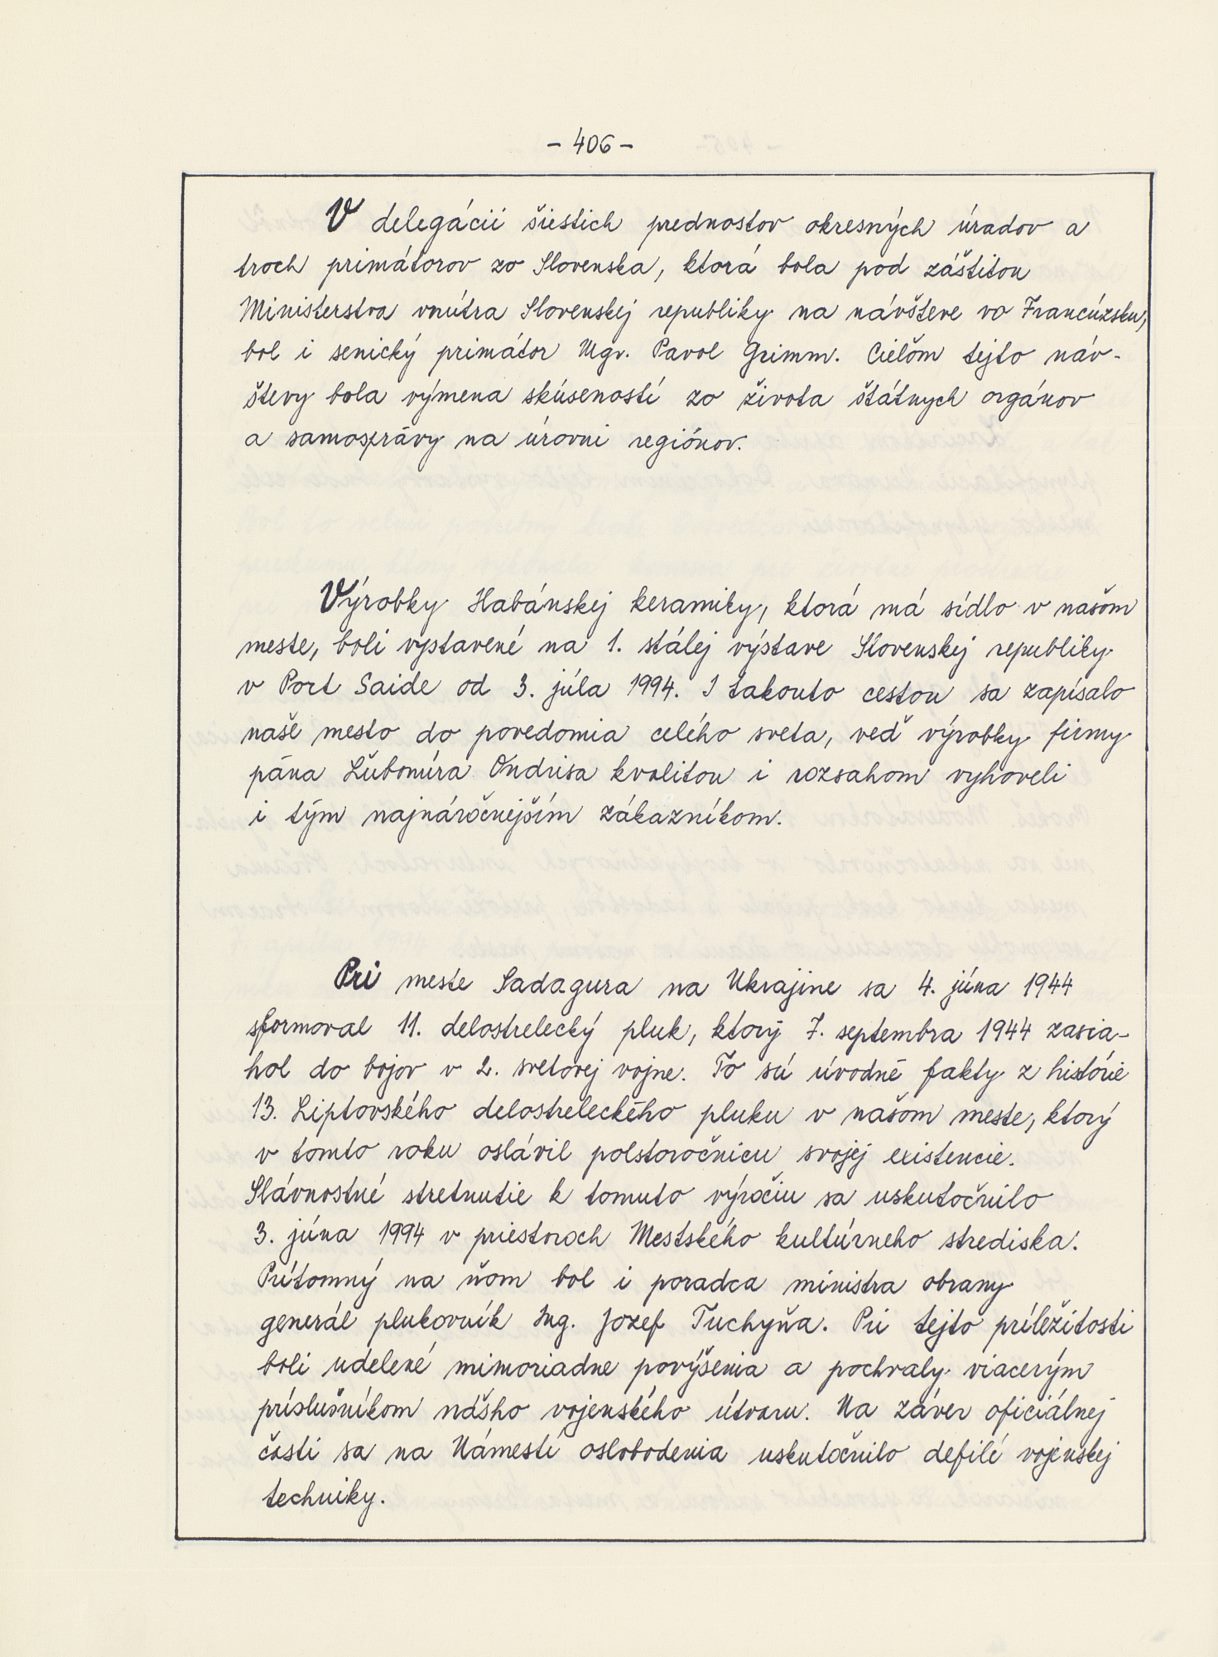 - 406 -
V delegácii šiestich prednostov okresných úradov a
troch primátorov zo Slovenska, ktorá bola pod záštitou
Ministerstva vnútra Slovenskej republiky na návšteve vo Francúzsku,
bol i senický primátor Mgr. Pavol Grimm. Cieľom tejto náv-
števy bola výmena skúseností zo života štátnych orgánov
a samosprávy na úrovni regiónov.
Výrobky Habánskej keramiky, ktorá má sídlo v našom
meste, boli vystavené na 1. stálej výstave Slovenskej republiky
v Port Saide od 3. júla 1994. I takouto cestou sa zapísalo
naše mesto do povedomia celého sveta, veď výrobky firmy
pána Ľubomíra Ondrisa kvalitou i rozsahom vyhoveli
i tým najnáročnejším zákazníkom.
Pri meste Sadagura na Ukrajine sa 4. júna 1944
sformoval 11. delostrelecký pluk, ktorý 7. septembra 1944 zasia-
hol do bojov v 2. svetovej vojne. To sú úvodné fakty z histórie
13. Liptovského delostreleckého pluku v našom meste, ktorý
v tomto roku oslávil polstoročnicu svojej existencie.
Slávnostné stretnutie k tomuto výročiu sa uskutočnilo
3. júna 1994 v priestoroch Mestského kultúrneho strediska.
Prítomný na ňom bol i poradca ministra obrany
generál plukovník Ing. Jozef Tuchyňa. Pri tejto príležitosti
boli udelené mimoriadne povýšenia a pochvaly viacerým
príslušníkom nášho vojenského útvaru. Na záver oficiálnej
časti sa na Námestí oslobodenia uskutočnilo defilé vojenskej
techniky.